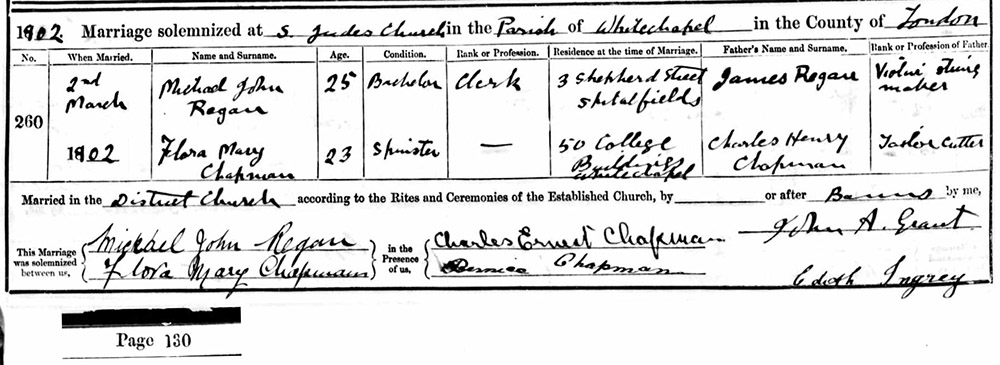 1902. Marriage solemnized at S. Judes Church in the Parish of Whitechapel in the County of London
No. When Married. Name and Surname. Age. Condition. Rank or Profession. Residence at the time of Marriage. Father's Name and Surname. Rank or Profession of Father.
2nd Michael John 25 Bachelor Clerk 3 Shepherd Street James Regan Violin string
March Regan Spitalfields maker
260
1902 Flora Mary 23 Spinster — 50 College Charles Henry Tailor Cutter
Chapman Buildings Chapman
Whitechapel
Married in the District Church according to the Rites and Ceremonies of the Established Church, by or after Banns by me,
This Marriage was solemnized between us, Michael John Regan in the Presence of us, Charles Ernest Chapman John A. Grant
Flora Mary Chapman Bernice Chapman
Edith Ingrey
Page 130